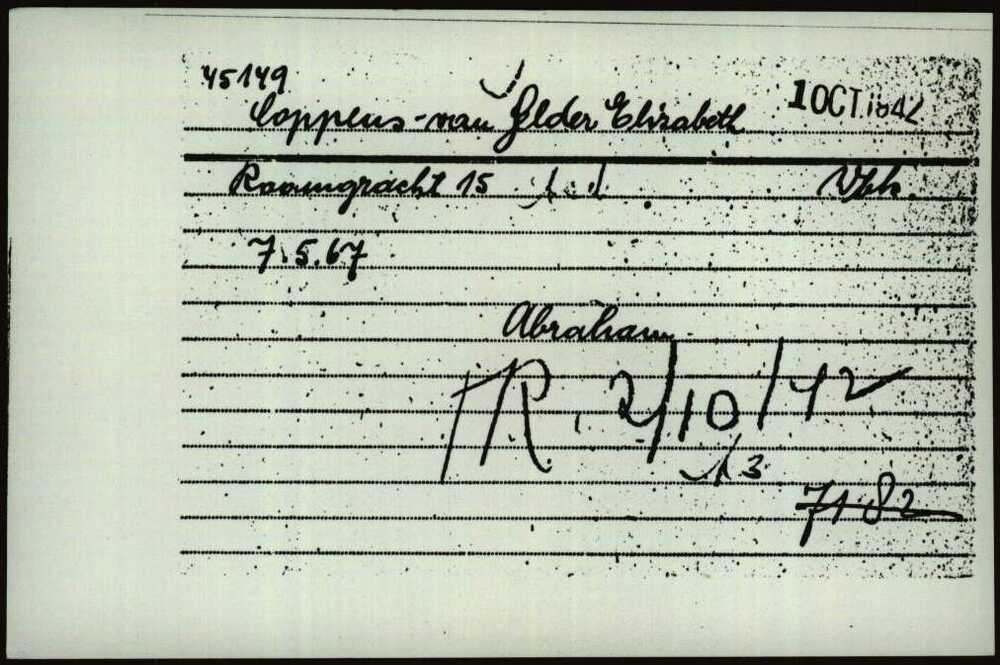 45149
Coppens-van Gelder Elisabeth
1 OCT. 1942
Raamgracht 15
7.5.67
Abraham
TR. 2/10/42
13
7182